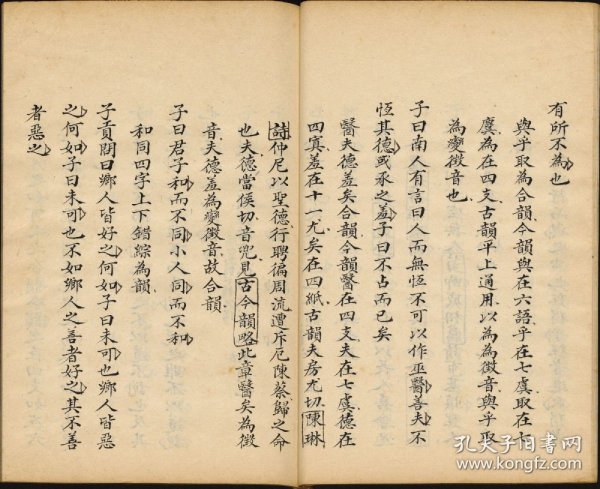 有所不為也
與乎取為合韻今韻與在六語乎在七虞取在七
麌為在四支古韻平上通用以為為徵音與乎取
為變徵音也
子曰南人有言曰人而無恆不可以作巫醫善夫不
恆其德或承之羞子曰不占而已矣
醫夫德羞矣合韻今韻醫在四支夫在七虞德在
四寘羞在十一尤矣在四紙古韻夫房尤切陳琳
詩仲尼以聖德行聘徧周流遭斥厄陳蔡歸之命
也夫德當侯切音兜見古今韻略此章醫矣為徵
音夫德羞為變徵音故合韻
子曰君子和而不同小人同而不和
和同四字上下錯綜為韻
子貢問曰鄉人皆好之何如子曰未可也鄉人皆惡
之何如子曰未可也不如鄉人之善者好之其不善
者惡之
孔夫子旧书网
www.kongfz.com